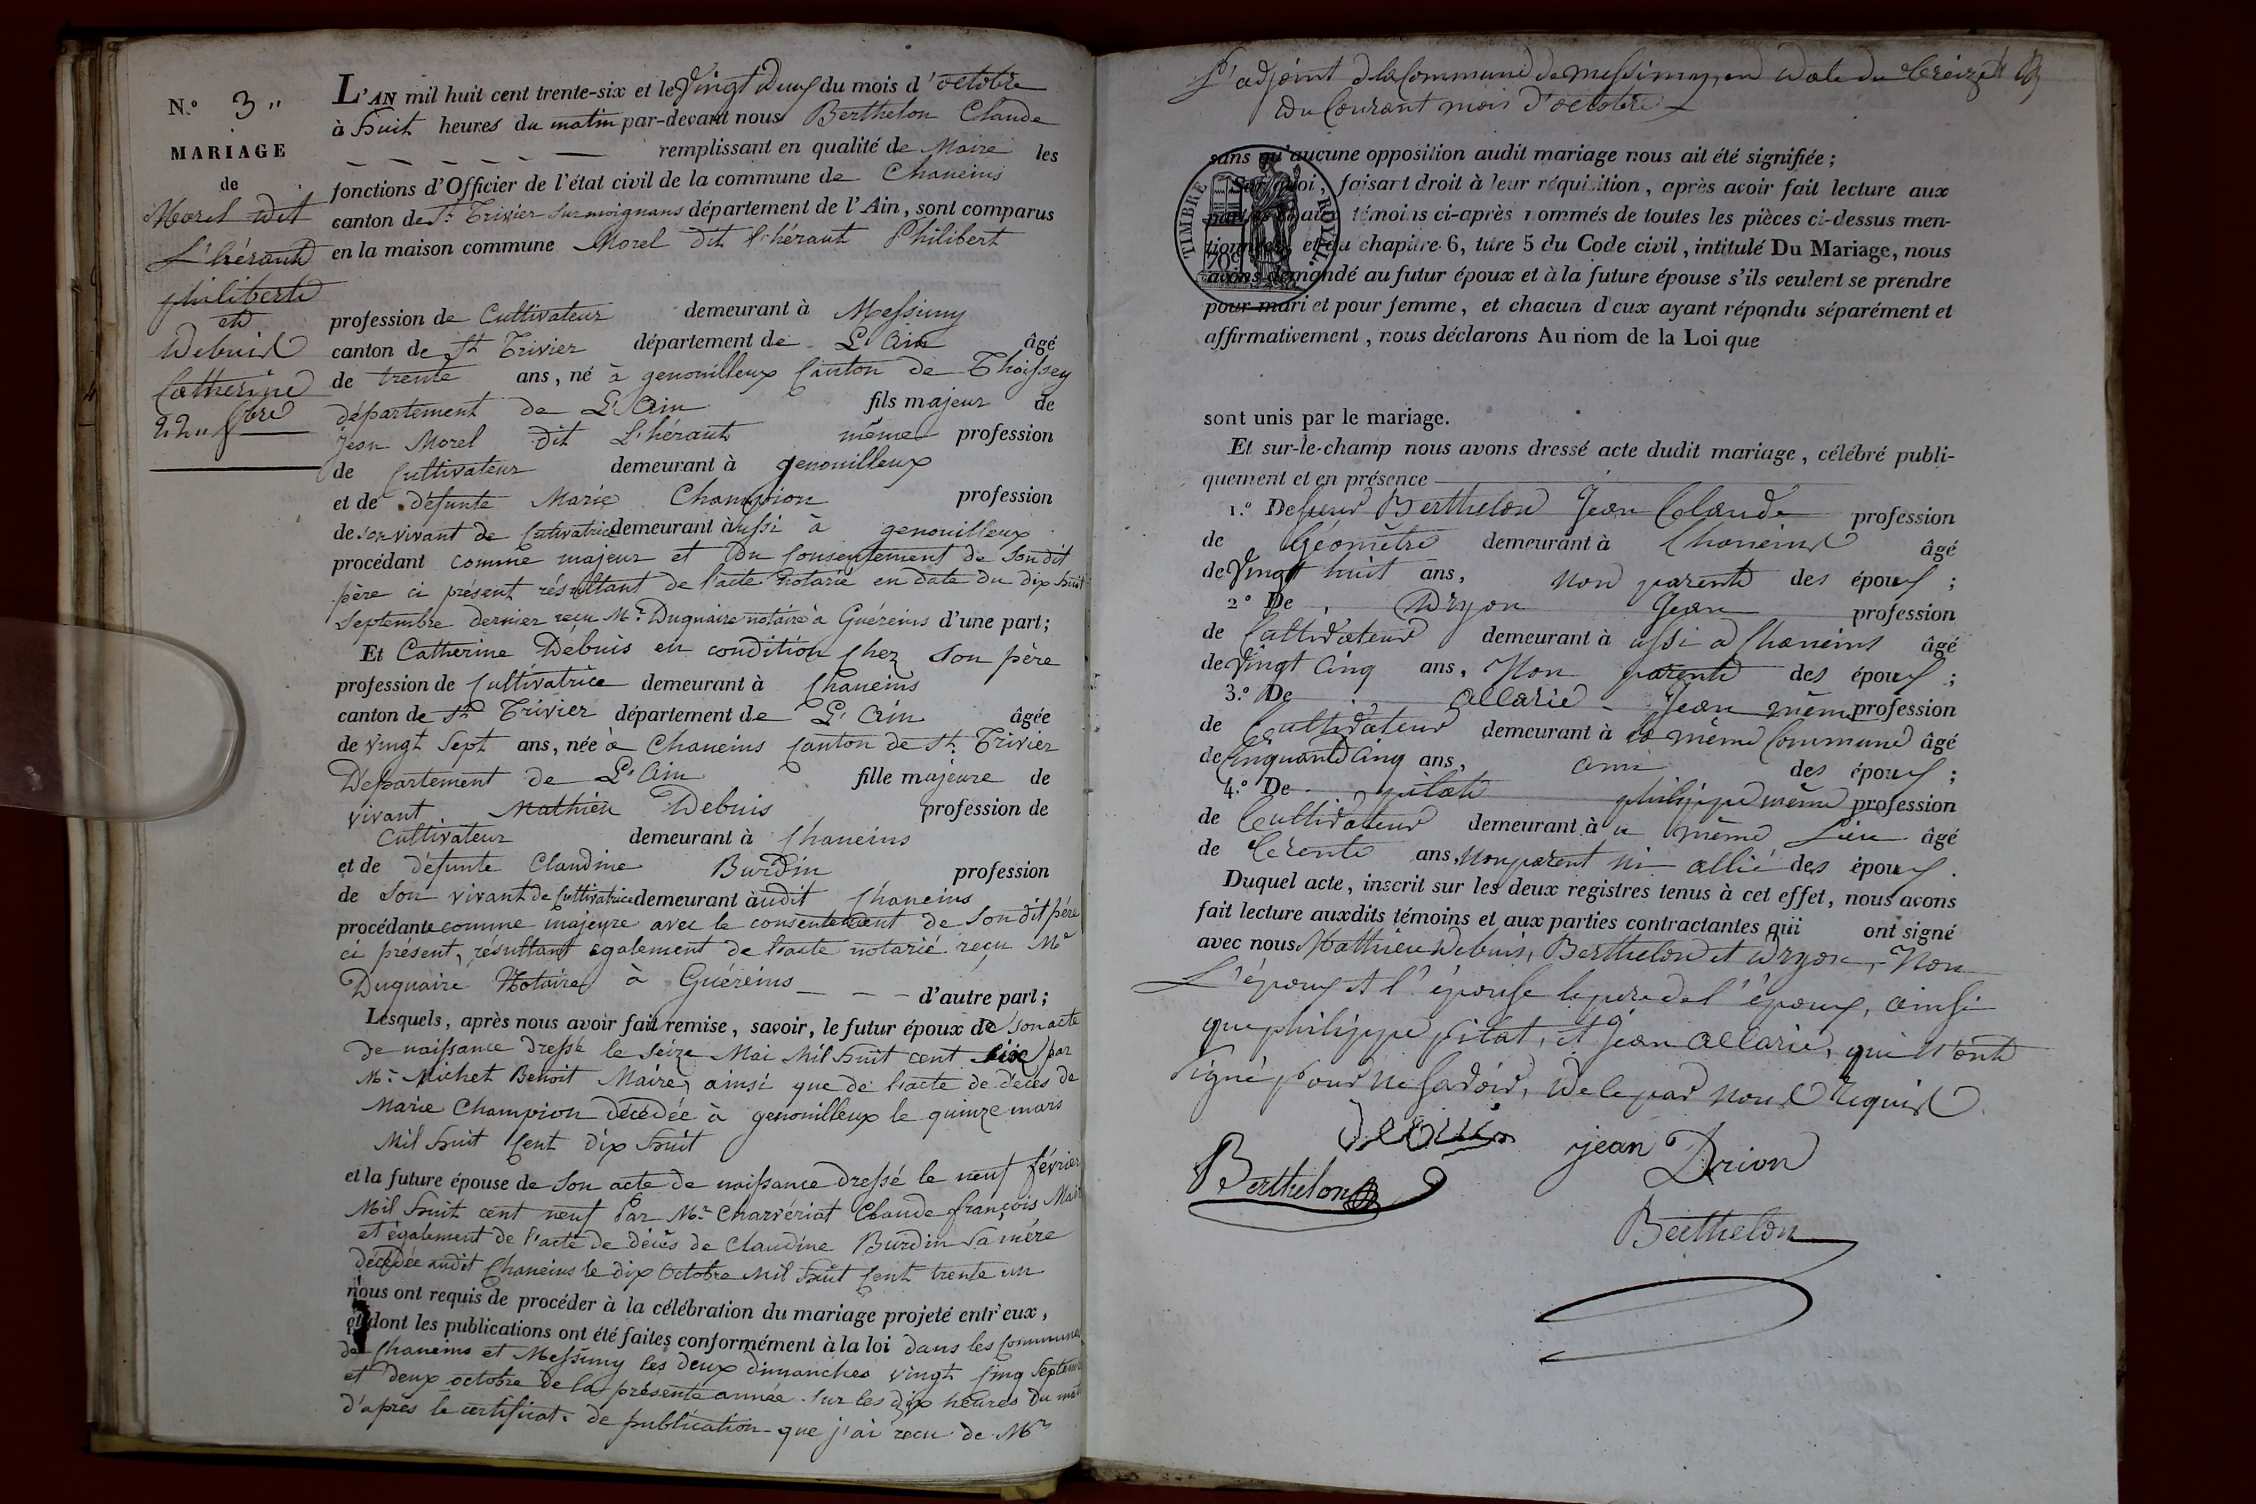 N.° 3 "
MARIAGE
de
Morel dit
L'héraud
philibert
et
Debuis
Catherine
22 " 8bre
L'AN mil huit cent trente-six et le Vingt deux du mois d'octobre
à huit heures du matin par-devant nous Berthelon Claude
remplissant en qualité de Maire les
fonctions d'Officier de l'état civil de la commune de Chaneins
canton de St. Trivier sur moignans département de l'Ain, sont comparus
en la maison commune Morel dit l'héraut Philibert
profession de Cultivateur demeurant à Messimy
canton de St Trivier département de L'Ain âgé
de trente ans, né à genouilleux Canton de Thoissey
département de L'Ain fils majeur de
Jean Morel dit L'héraut même profession
de Cultivateur demeurant à genouilleux
et de défunte Marie Champion profession
de son vivant de Cultivatrice demeurant à aussi à genouilleux
procédant comme majeur et du Consentement de Son dit
père ci présent résultant de l'acte notarié en date du dix huit
Septembre dernier reçu Mr. Duquaire notaire à Guéreins d'une part;
Et Catherine Debuis en condition Chez Son père
profession de Cultivatrice demeurant à Chaneins
canton de St Trivier département de L'Ain âgée
de vingt Sept ans, née à Chaneins Canton de St. Trivier
Département de L'Ain fille majeure de
vivant Mathieu Debuis profession de
Cultivateur demeurant à Chaneins
et de défunte Claudine Burdin profession
de Son vivant de Cultivatrice demeurant à udit Chaneins
procédante comme majeure avec le consentement de Son dit père
ci présent, résultant également de l'acte notarié reçu Mr
Duquaire Notaire à Guéreins d'autre part;
Lesquels, après nous avoir fait remise, savoir, le futur époux de Son acte
de naissance dressé le Seize Mai Mil huit cent Six par
Mr. Michet Benoit Maire, ainsi que de l'acte de décès de
Marie Champion décédée à genouilleux le quinze mars
Mil huit Cent dix huit
et la future épouse de Son acte de naissance dressé le neuf février
Mil huit cent neuf Par Mr. Charvériat Claude françois Maire
et également de l'acte de décès de Claudine Burdin Sa mère
décédée audit Chaneins le dix Octobre Mil huit Cent trente un
nous ont requis de procéder à la célébration du mariage projeté entr'eux,
et dont les publications ont été faites conformément à la loi dans les Communes
de Chaneins et Messimy les deux dimanches vingt Cinq Septembre
et deux octobre de la présente année Sur les dix heures du matin
d'après le certificat de publication que j'ai reçu de Mr
L'adjoint de la Commune de Messimy, en date du treize
du Courant mois d'octobre
sans qu'aucune opposition audit mariage nous ait été signifiée;
Sur quoi, faisant droit à leur réquisition, après avoir fait lecture aux
parties et aux témoins ci-après nommés de toutes les pièces ci-dessus men-
tionnées, et du chapitre 6, titre 5 du Code civil, intitulé Du Mariage, nous
avons demandé au futur époux et à la future épouse s'ils veulent se prendre
pour mari et pour femme, et chacun d'eux ayant répondu séparément et
affirmativement, nous déclarons Au nom de la Loi que
TIMBRE ROYAL.
70c
sont unis par le mariage.
Et sur-le-champ nous avons dressé acte dudit mariage, célébré publi-
quement et en présence
1.° De sieur Berthelon Jean Claude profession
de Géomètre demeurant à Chaneins âgé
de Vingt huit ans, non parent des époux;
2.° De Dryon Jean profession
de Cultivateur demeurant à ussi a Chaneins âgé
de Vingt Cinq ans, Non parent des époux;
3.° De allarie Jean même profession
de Cultivateur demeurant à la même Commune âgé
de Cinquante Cinq ans, ami des époux;
4.° De pilat philippe même profession
de Cultivateur demeurant à u même Lieu âgé
de trente ans, Non parent ni allié des époux.
Duquel acte, inscrit sur les deux registres tenus à cet effet, nous avons
fait lecture auxdits témoins et aux parties contractantes qui ont signé
avec nous Matthieu Debuis, Berthelon et Dryon, Non
L'époux et l'épouse le pere de l'époux, ainsi
que philippe pilat, et Jean allarie, qui n'ont
Signé pour ne Savoir, de ce par nous requis
debuis
jean Drion
Berthelon
Berthelon